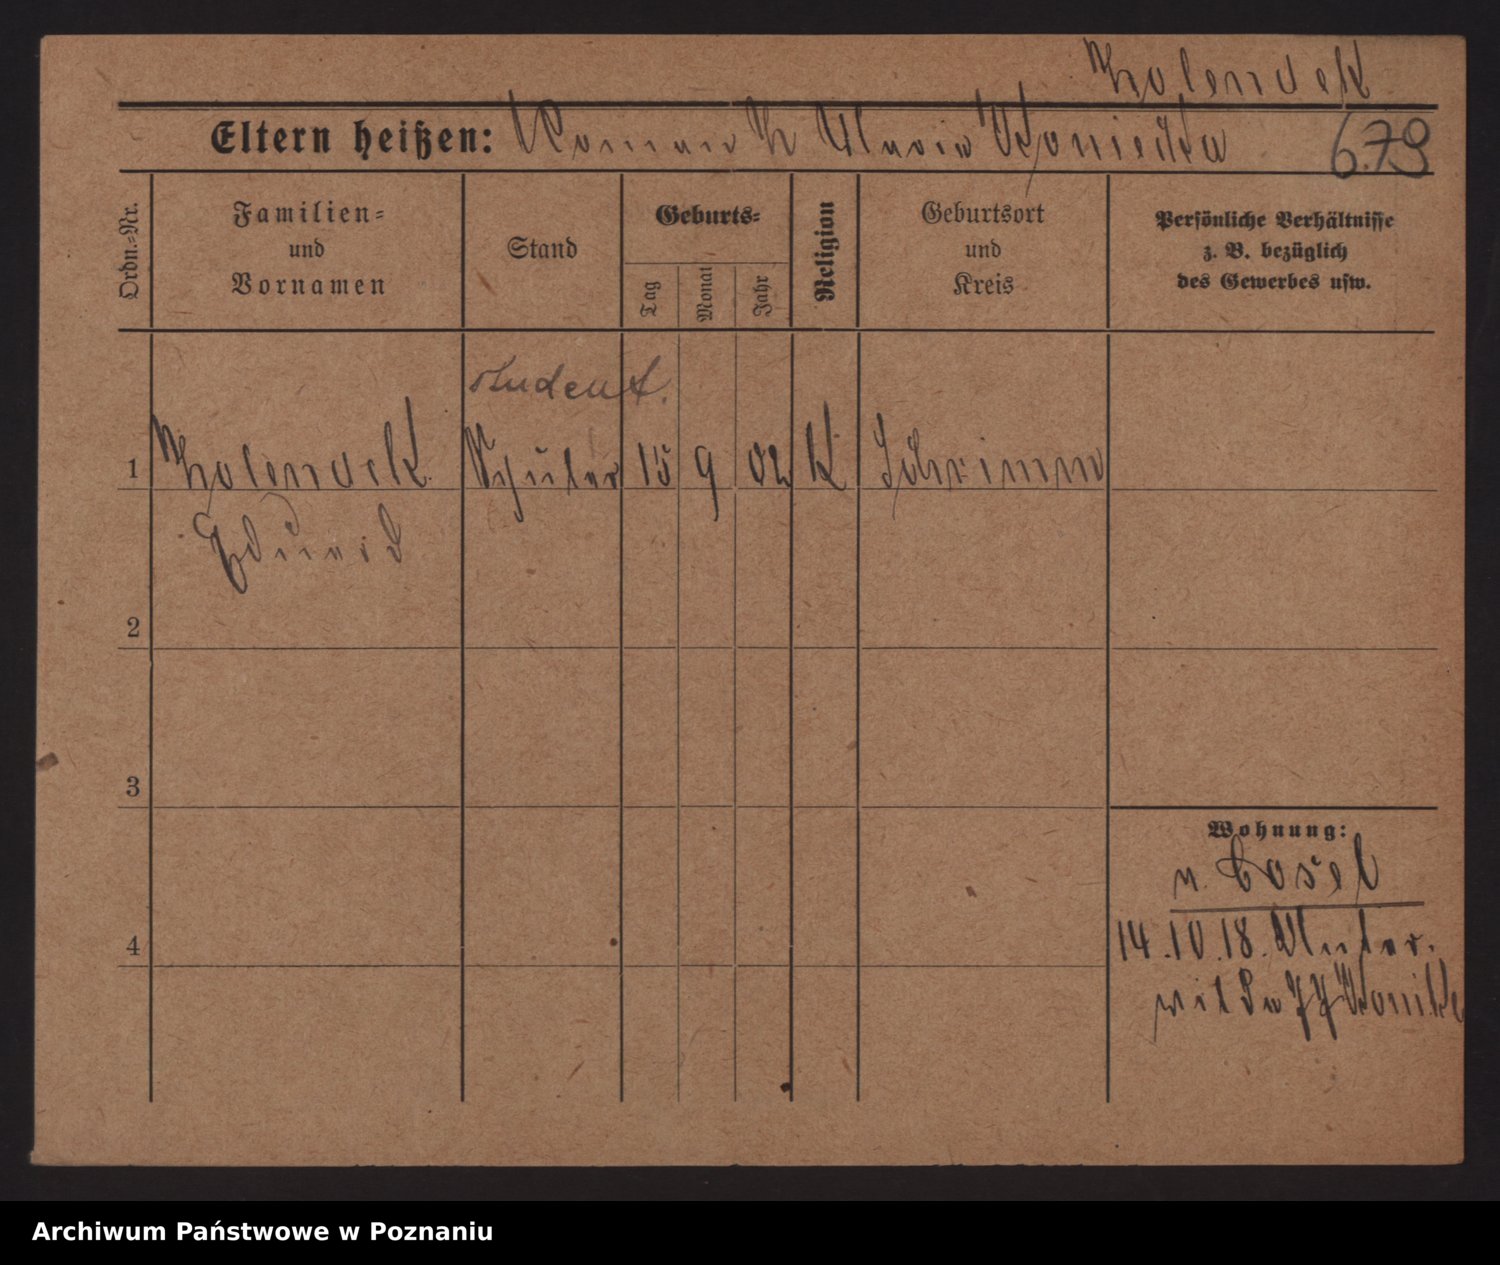 Holendek
Eltern heißen: Roman H Maria Koniecka 6.79
Ordn.-Nr.
Familien=
und
Vornamen
Stand
Geburts=
Tag
Monat
Jahr
Religion
Geburtsort
und
Kreis
Persönliche Verhältnisse
z. B. bezüglich
des Gewerbes usw.
student.
1 Holendek Schüler 15 9 02 K Schrimm
Eduard
2
3
4
Wohnung:
n. Cosel
14.10.18. Unter.
wilda
Archiwum Państwowe w Poznaniu